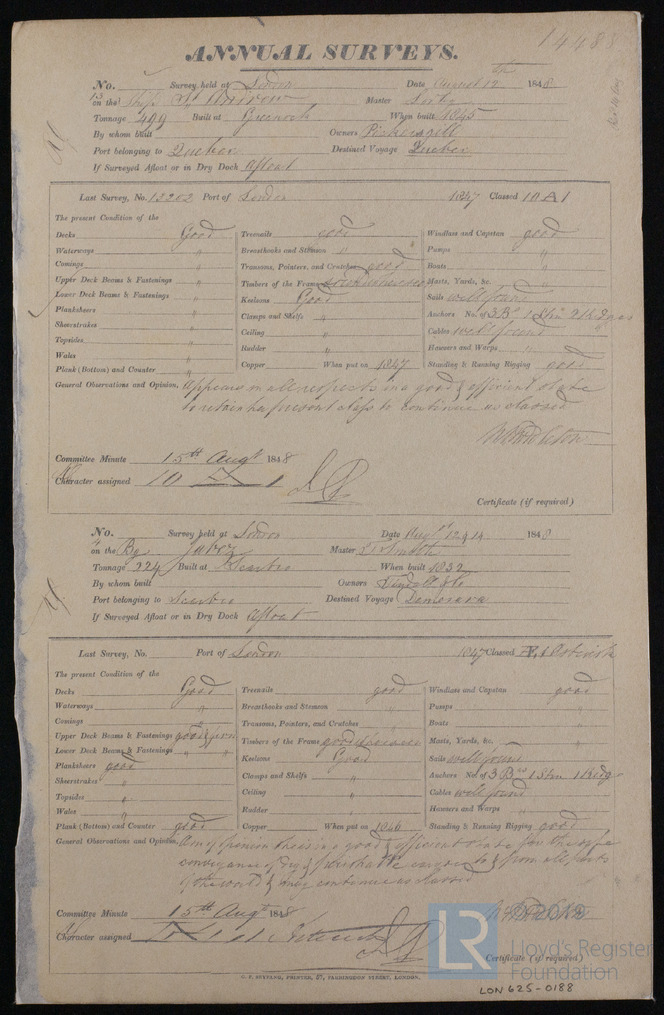 14488
ANNUAL SURVEYS.
No. Survey held at London Date August 12th 1848
13 on the Ship St Andrew Master
Tonnage 499 Built at Greenock When built 1845
By whom built Owners Pickersgill
Port belonging to Quebec Destined Voyage Quebec
If Surveyed Afloat or in Dry Dock Afloat
Last Survey, No. 13202 Port of London 1847 Classed 10 A 1
The present Condition of the
Decks Good Treenails good Windlass and Capstan good
Waterways " Breasthooks and Stemson " Pumps "
Comings " Transoms, Pointers, and Crutches good Boats "
Upper Deck Beams & Fastenings " Timbers of the Frame Masts, Yards, &c. "
Lower Deck Beams & Fastenings " Keelsons Good Sails well found
Planksheers " Clamps and Shelfs " Anchors No. of 3 Br 1 Strm 2 Kedges
Sheerstrakes " Ceiling " Cables well found
Topsides " Rudder " Hawsers and Warps "
Wales "
Plank (Bottom) and Counter " Copper When put on 1847 Standing & Running Rigging good
General Observations and Opinion, Appears in all respects in a good & efficient state
to retain her present class & to continue as classed
Committee Minute 15th Augt 1848
Character assigned 10 A 1
Certificate (if required)
No. Survey held at London Date Augt 12 & 14 1848
" on the Bg Master Smith
Tonnage 224 Built at Scarbro When built 1832
By whom built Owners Tindall & Co
Port belonging to Scarbro Destined Voyage Demerara
If Surveyed Afloat or in Dry Dock Afloat
Last Survey, No. Port of London 1847 Classed Æ 1
The present Condition of the
Decks Good Treenails good Windlass and Capstan good
Waterways " Breasthooks and Stemson Pumps "
Comings " Transoms, Pointers, and Crutches " Boats "
Upper Deck Beams & Fastenings good & firm Timbers of the Frame good Masts, Yards, &c. "
Lower Deck Beams & Fastenings " " Keelsons Good Sails well found
Planksheers good Clamps and Shelfs " Anchors No. of 3 Brs 1 Strm 1 Kedg
Sheerstrakes " Ceiling " Cables well found
Topsides " Rudder " Hawsers and Warps "
Wales "
Plank (Bottom) and Counter good Copper When put on 1846 Standing & Running Rigging good
General Observations and Opinion, Am of Opinion she is in a good & efficient state for the safe
conveyance of Dry & perishable cargoes to & from all parts
of the world & may continue as classed
Committee Minute 15th Augt 1848
Character assigned
Certificate (if required)
LR
Lloyd's Register
Foundation
LON 625-0188